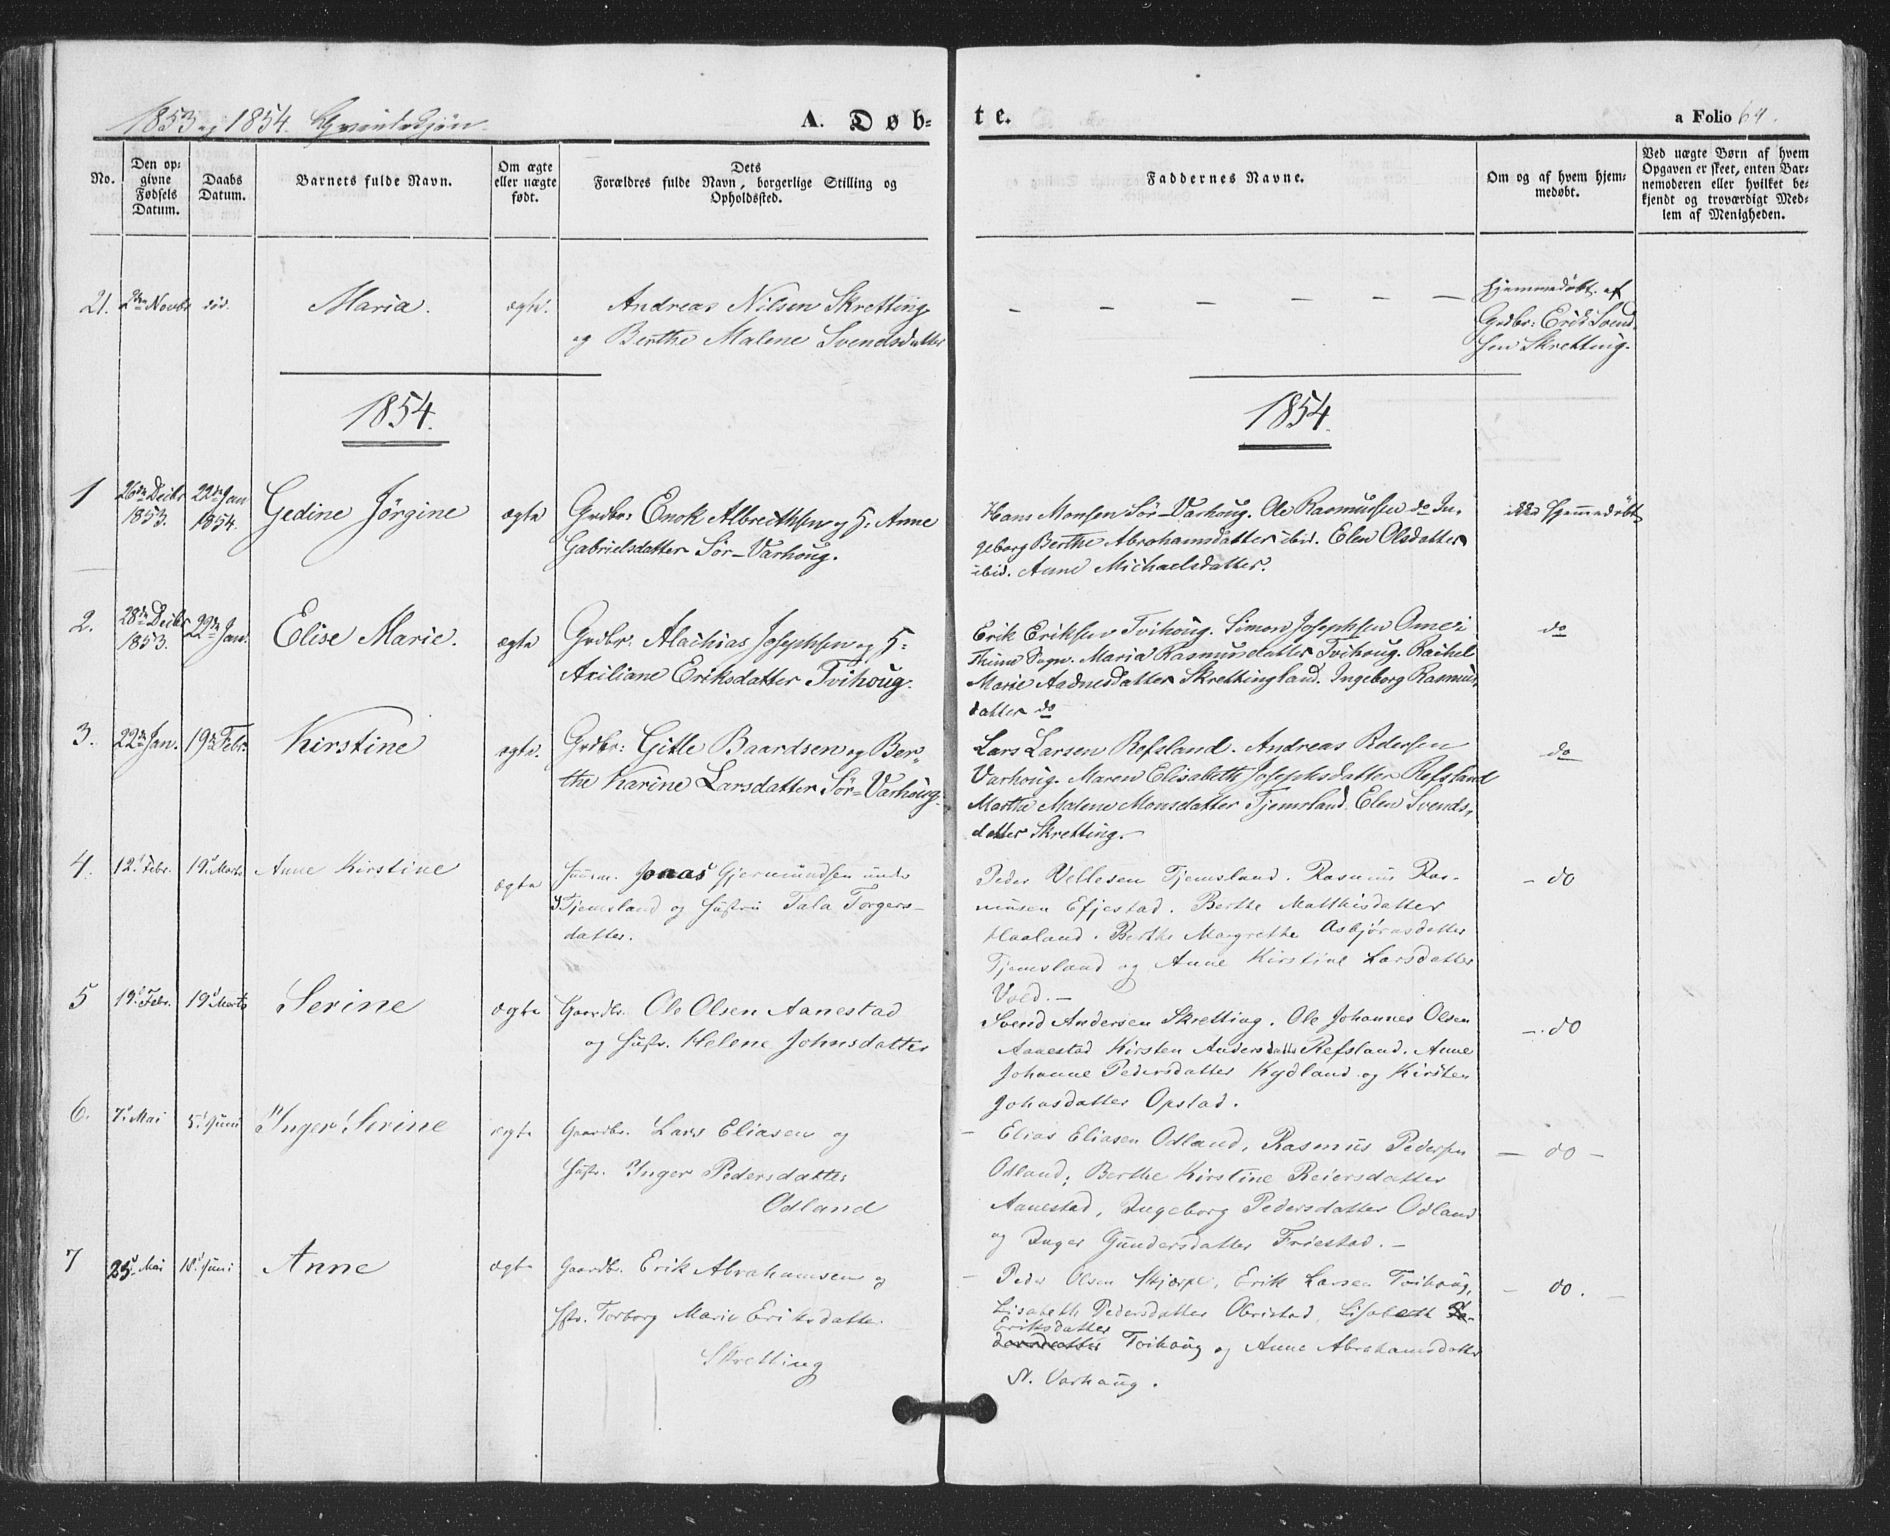 1853 og 1854. Qvindekjøn.
A. Døb-
te.
a Folio 64.
No.
Den op-
givne
Fødsels
Datum.
Daabs
Datum.
Barnets fulde Navn.
Om ægte
eller uægte
født.
Dets
Forældres fulde Navn, borgerlige Stilling og
Opholdssted.
Faddernes Navne.
Om og af hvem hjem-
medøbt.
Ved uægte Børn af hvem
Opgaven er skeet, enten Bar-
nemoderen eller hvilket be-
kjendt og troværdigt Med-
lem af Menigheden.
21. 2den Novbr død. Maria. ægte.
Andreas Nilsen Skretting
og Berthe Malene Svendsdatter
— — — — — —
Hjemmedøbt af
Grdbr: Erik Svend-
sen Skretting.
1854.
1854.
1 26de Decbr 1853. 22de Jan 1854. Gedine Jørgine ægte
Grdbr: Enok Albrethsen og H. Anne
Gabrielsdatter Sør-Varhoug.
Hans Monsen Sør-Varhoug. Ole Rasmussen do In-
geborg Berthe Abrahamsdatter ibid. Elen Olsdatter
ibid. Anne Michaelsdatter.
ikke Hjemmedøbt
2. 28de Decbr 1853. 22de Jan. Elise Marie. ægte
Grdbr. Mathias Josephsen og H:
Axiliane Eriksdatter Tvihoug.
Erik Eriksen Tvihoug. Simon Josephsen i
Thime Sogn. Maria Rasmusdatter Tvihoug. Rachel
Marie Aadnesdatter Skrettingland. Ingeborg Rasmus-
datter do
do
3. 22de Jan. 19de Febr. Kirstine ægte.
Grdbr: Gitle Baardsen og Ber-
tha Karine Larsdatter Sør-Varhoug.
Lars Larsen Refsland. Andreas Pedersen
Varhoug. Maren Elisabeth Josephsdatter Refsland
Martha Malene Monsdatter Tjemsland. Elen Svends-
datter Skretting.
do
4. 12te Febr. 19d Marts Anne Kirstine ægte
Huusm. Jonas Gjermundsen under
Tjemsland og Hustru Tala Torgers-
datter.
Peder Vellesen Tjemsland. Rasmus Ras-
musen Efjestad. Berthe Matthisdatter
Haaland. Berthe Margrethe Asbjørnsdatter
Tjemsland og Anne Kirstine Larsdatter
Vold.—
— do
5 19d Febr. 19d Marts Serine ægte
Gaardbr. Ole Olsen Aanestad
og Hustr. Helene Johnsdatter
Svend Andersen Skretting. Ole Johannes Olsen
Aanestad Kirsten Andersdatter Refsland. Anne
Johanne Pedersdatter Kydland og Kirsten
Johnsdatter Opstad.
—. do
6. 7d Mai 5d Juni Inger Serine ægte
Gaardbr. Lars Eliasen og
Hustr. Inger Pedersdatter
Odland
Elias Eliasen Odland, Rasmus Pedersen
Odland; Berthe Kirstine Reiersdatter
Aanestad, Ingeborg Pedersdatter Odland
og Inger Gundersdatter Friestad.—
— do —
7 25d Mai 18d Juni Anne ægte
Gaardbr. Erik Abrahamsen og
Hstr. Torborg Marie Eriksdatter
Skretting
Peder Olsen Skjærpe, Erik Larsen Tvihoug,
Lisabeth Pedersdatter Obrestad, Lisabeth
Eriksdatter
Tvihoug og Anne Abrahamsdatter
N. Varhaug.
— do. —